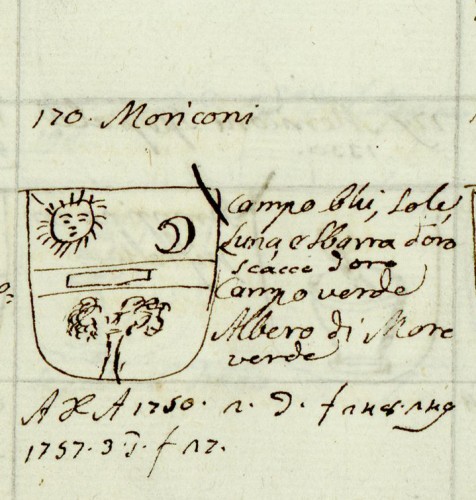 170. Moriconi
Campo blù, Sole,
Luna, e Sbarra d'oro
scacco d'oro
Campo verde
Albero di More
verde
A H A 1750.
1757. 3